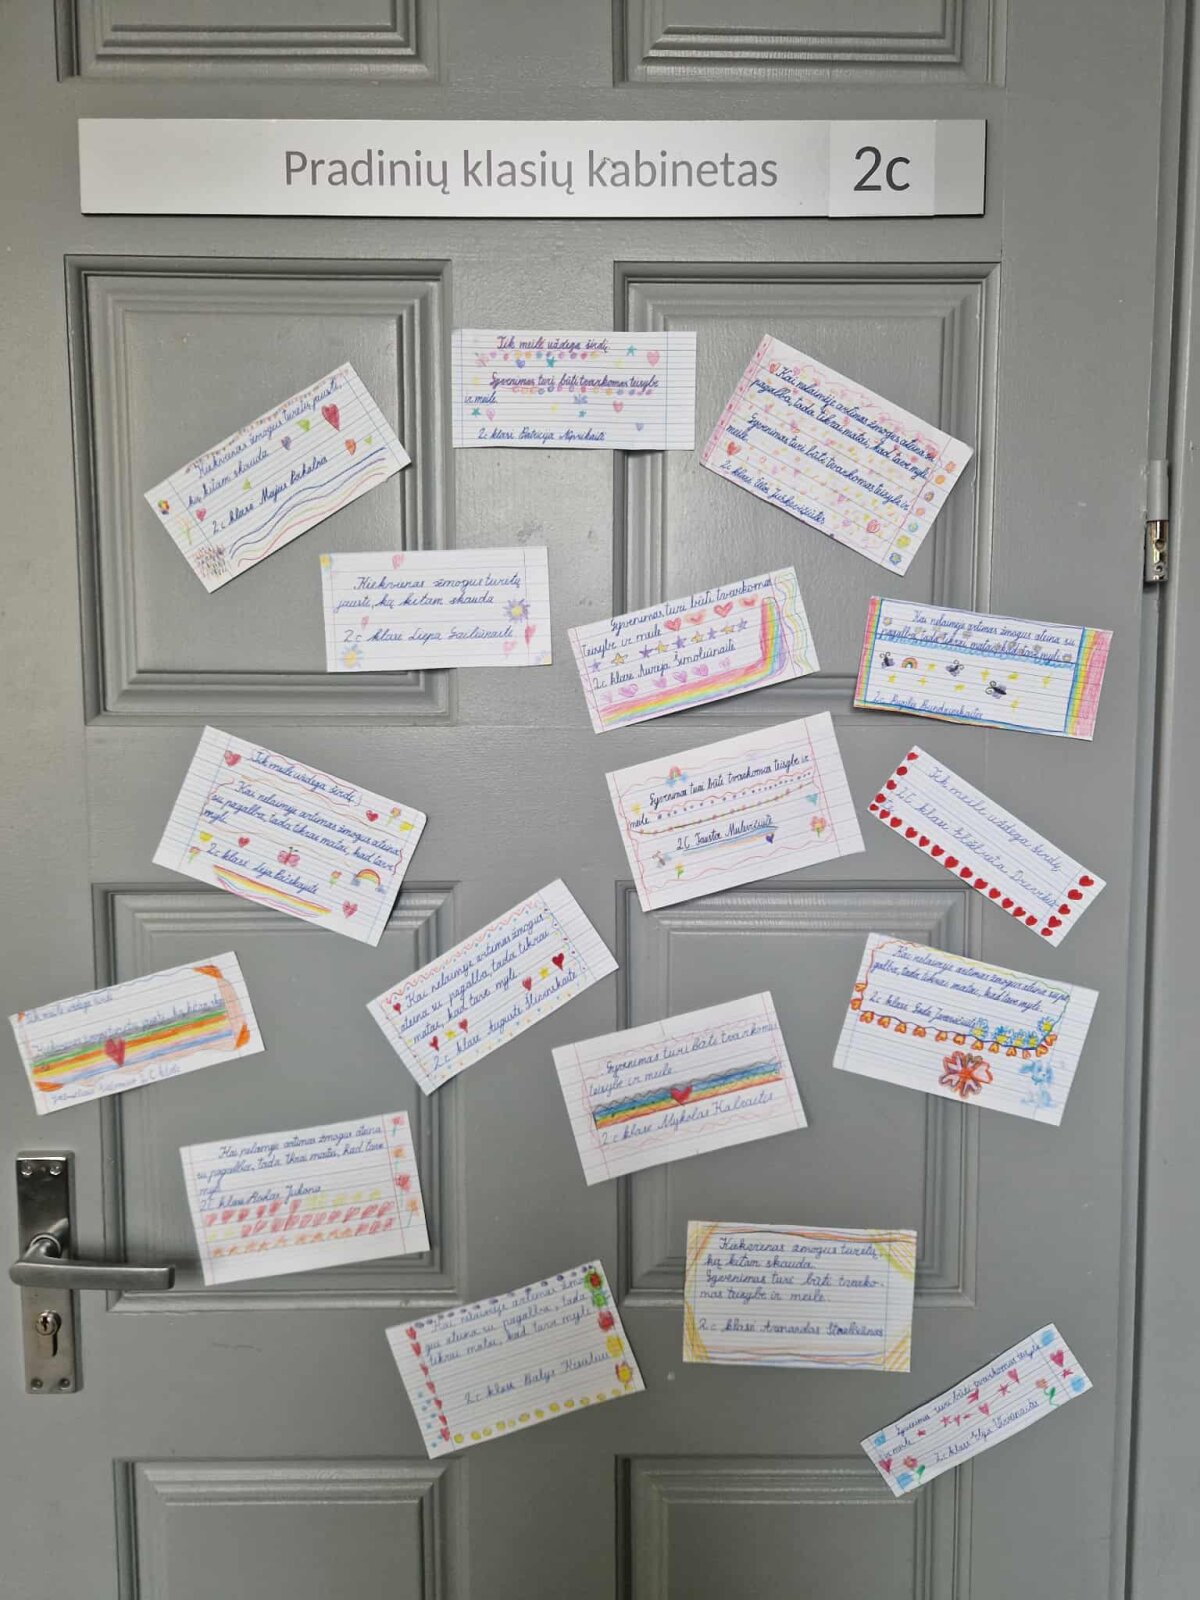 Pradinių klasių kabinetas 2c
Tik meilė uždega širdį.
Gyvenimas turi būti tvarkomas teisybe
ir meile.
2c klasė Patricija
Kiekvienas žmogus turėtų justi,
ką kitam skauda
2c klasė Majus Pakalna
Kai nelaimėje artimas žmogus ateina su
pagalba, tada tikrai matai, kad tave myli.
Gyvenimas turi būti tvarkomas teisybe ir
meile.
2c klasė
Kiekvienas žmogus turėtų
jausti, ką kitam skauda
2c klasė Liepa
Gyvenimas turi būti tvarkomas
teisybe ir meile
2c klasė Aurėja Šimoliūnaitė
Kai nelaimėje artimas žmogus ateina su
pagalba, tada tikrai matai, kad tave myli.
2c
Tik meilė uždega širdį.
Kai nelaimėje artimas žmogus ateina
su pagalba, tada tikrai matai, kad tave
myli.
2c klasė Lėja
Gyvenimas turi būti tvarkomas teisybe ir
meile
2C Fausta
Tik meilė uždega širdį
2C klasė Elžbieta
Tik meilė uždega širdį
Kai nelaimėje artimas žmogus
ateina su pagalba, tada tikrai
matai, kad tave myli.
2c klasė Augustė
Kai nelaimėje artimas žmogus ateina su pa
galba, tada tikrai matai, kad tave myli.
2c klasė Goda
Gyvenimas turi būti tvarkomas
teisybe ir meile
2c klasė Mykolas
Kai nelaimėje artimas žmogus ateina
su pagalba, tada tikrai matai, kad tave
myli
2c klasė Jukona
Kiekvienas žmogus turėtų
ką kitam skauda.
Gyvenimas turi būti tvarko-
mas teisybe ir meile.
2c klasė Armandas
Kai nelaimėje artimas žmo
gus ateina su pagalba, tada
tikrai matai, kad tave myli
2c klasė Balys
Gyvenimas turi būti tvarkomas teisybe
ir meile
2c klasė Elija